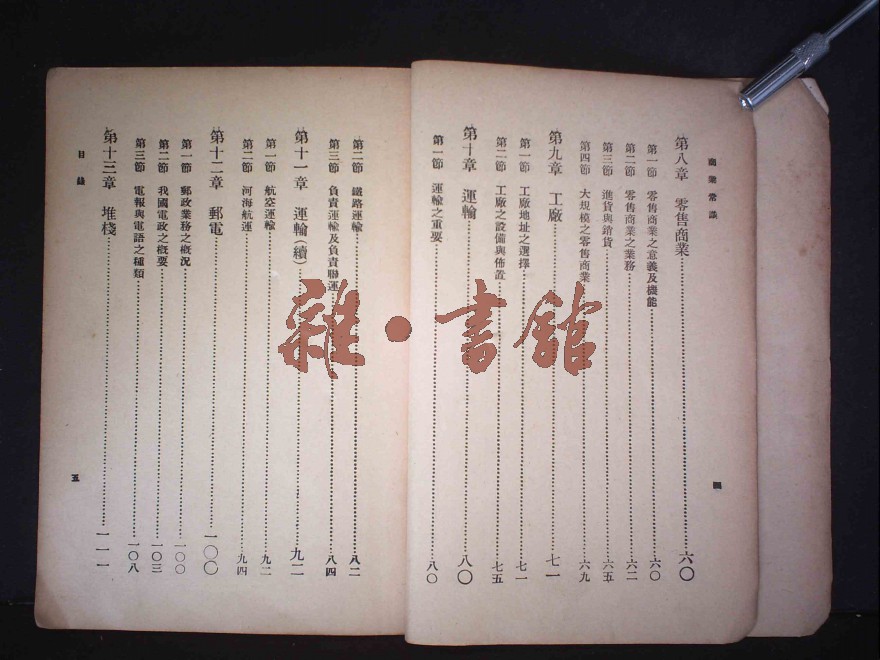 商業常識
第八章 零售商業……六〇
第一節 零售商業之意義及機能……六〇
第二節 零售商業之業務……六二
第三節 進貨與銷貨……六五
第四節 大規模之零售商業……六九
第九章 工廠……七一
第一節 工廠地址之選擇……七一
第二節 工廠之設備與佈置……七五
第十章 運輸……八〇
第一節 運輸之重要……八〇
四
第二節 鐵路運輸……八二
第三節 負責運輸及負責聯運……八四
第十一章 運輸(續)……九二
第一節 航空運輸……九二
第二節 河海航運……九四
第十二章 郵電……一〇〇
第一節 郵政業務之概況……一〇〇
第二節 我國電政之概要……一〇三
第三節 電報與電話之種類……一〇八
第十三章 堆棧……一一一
目錄
五
雜·書館